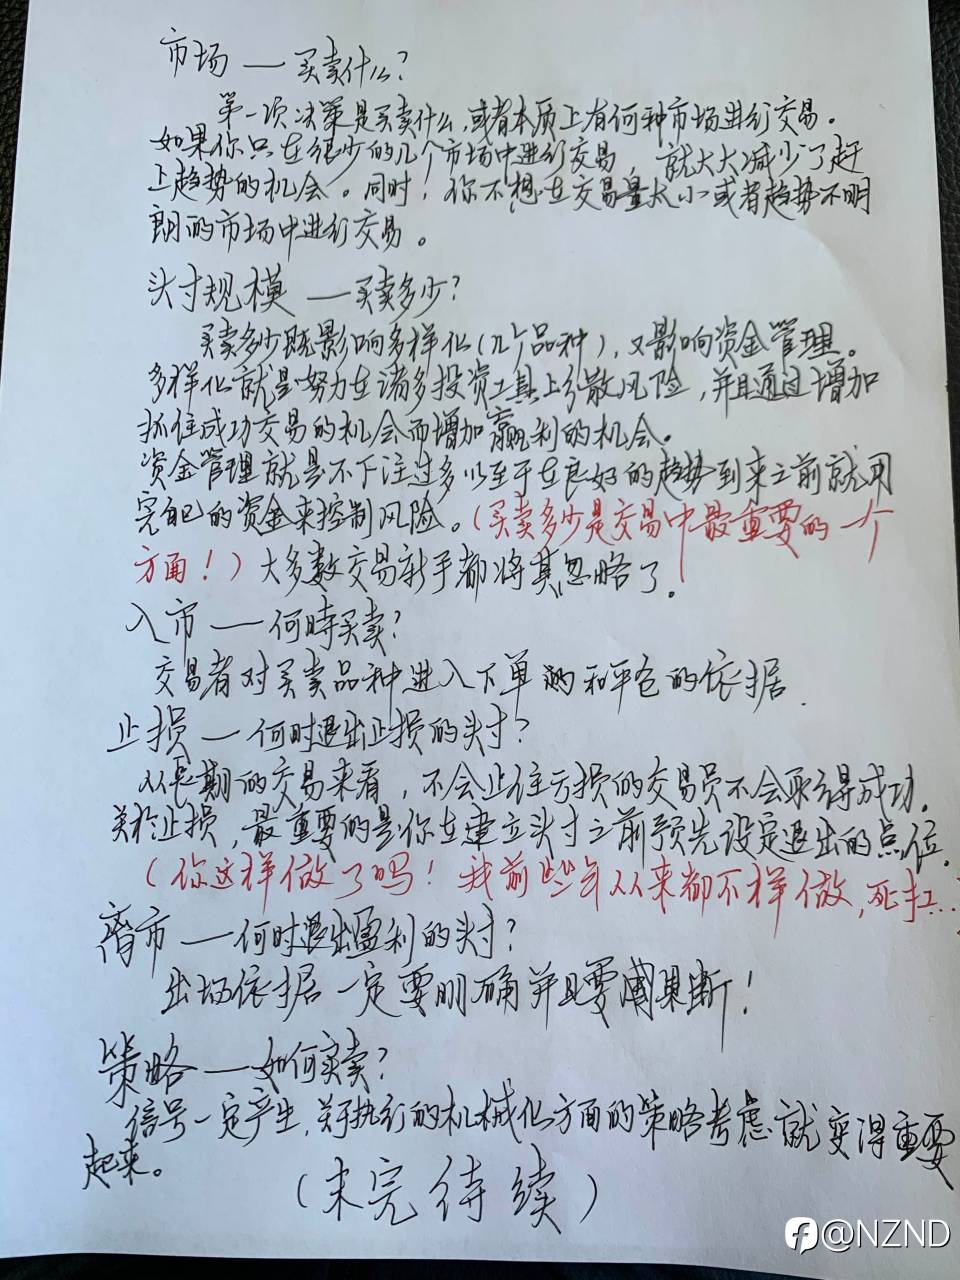 市场 — 买卖什么?
第一项决策是买卖什么,或者本质上有何种市场进行交易.
如果你只在很少的几个市场中进行交易,就大大减少了赶
上趋势的机会。同时!你不想在交易量太小或者趋势不明
朗的市场中进行交易。
头寸规模 — 买卖多少?
买卖多少既影响多样化(几个品种),又影响资金管理。
多样化就是努力在诸多投资工具上分散风险,并且通过增加
抓住成功交易的机会而增加赢利的机会。
资金管理就是不下注过多以至于在良好的趋势到来之前就用
完自己的资金来控制风险。(买卖多少是交易中最重要的一个
方面!)大多数交易新手都将其忽略了。
入市 — 何時买卖?
交易者对买卖品种进入下单 和平仓的依据.
止损 — 何时退出止损的头寸?
从长期的交易来看,不会止住亏损的交易员不会取得成功.
关於止损,最重要的是你在建立头寸之前预先设定退出的点位.
(你这样做了吗!我前些年从来都不样做,死扛...)
离市 — 何时退出盈利的头寸?
出场依据一定要明确并且要 果断!
策略 — 如何买卖?
信号一定产生,关于执行的机械化方面的策略考虑就变得重要
起来。
(未完待续)
@NZND